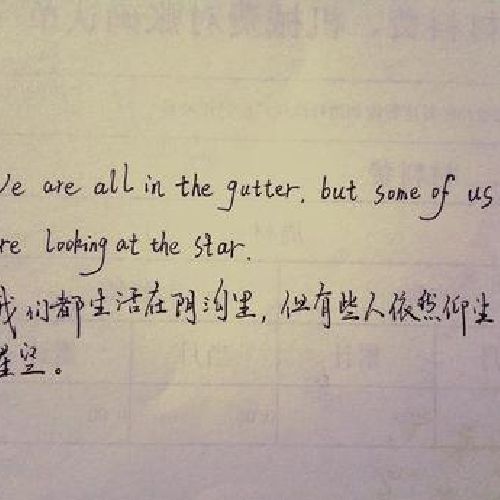 We are all in the gutter, but some of us
re looking at the star.
我们都生活在阴沟里，但有些人依然仰望
星空。